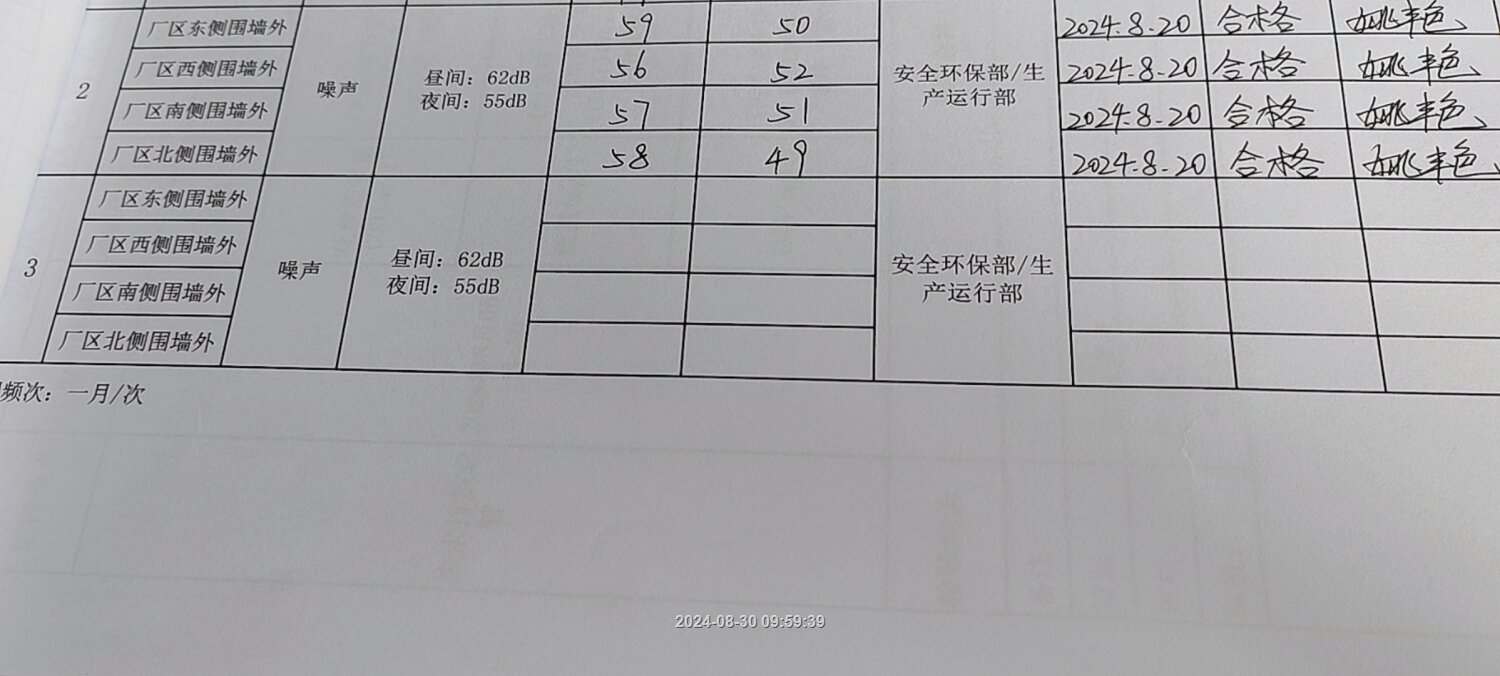 厂区东侧围墙外 59 50 2024.8.20 合格 姚丰色
2 厂区西侧围墙外 噪声 昼间：62dB 56 52 安全环保部/生 2024.8.20 合格 姚丰色
夜间：55dB 产运行部
厂区南侧围墙外 57 51 2024.8.20 合格 姚丰色
厂区北侧围墙外 58 49 2024.8.20 合格 姚丰色
厂区东侧围墙外
厂区西侧围墙外
3 噪声 昼间：62dB 安全环保部/生
夜间：55dB 产运行部
厂区南侧围墙外
厂区北侧围墙外
频次：一月/次
2024-08-30 09:59:39